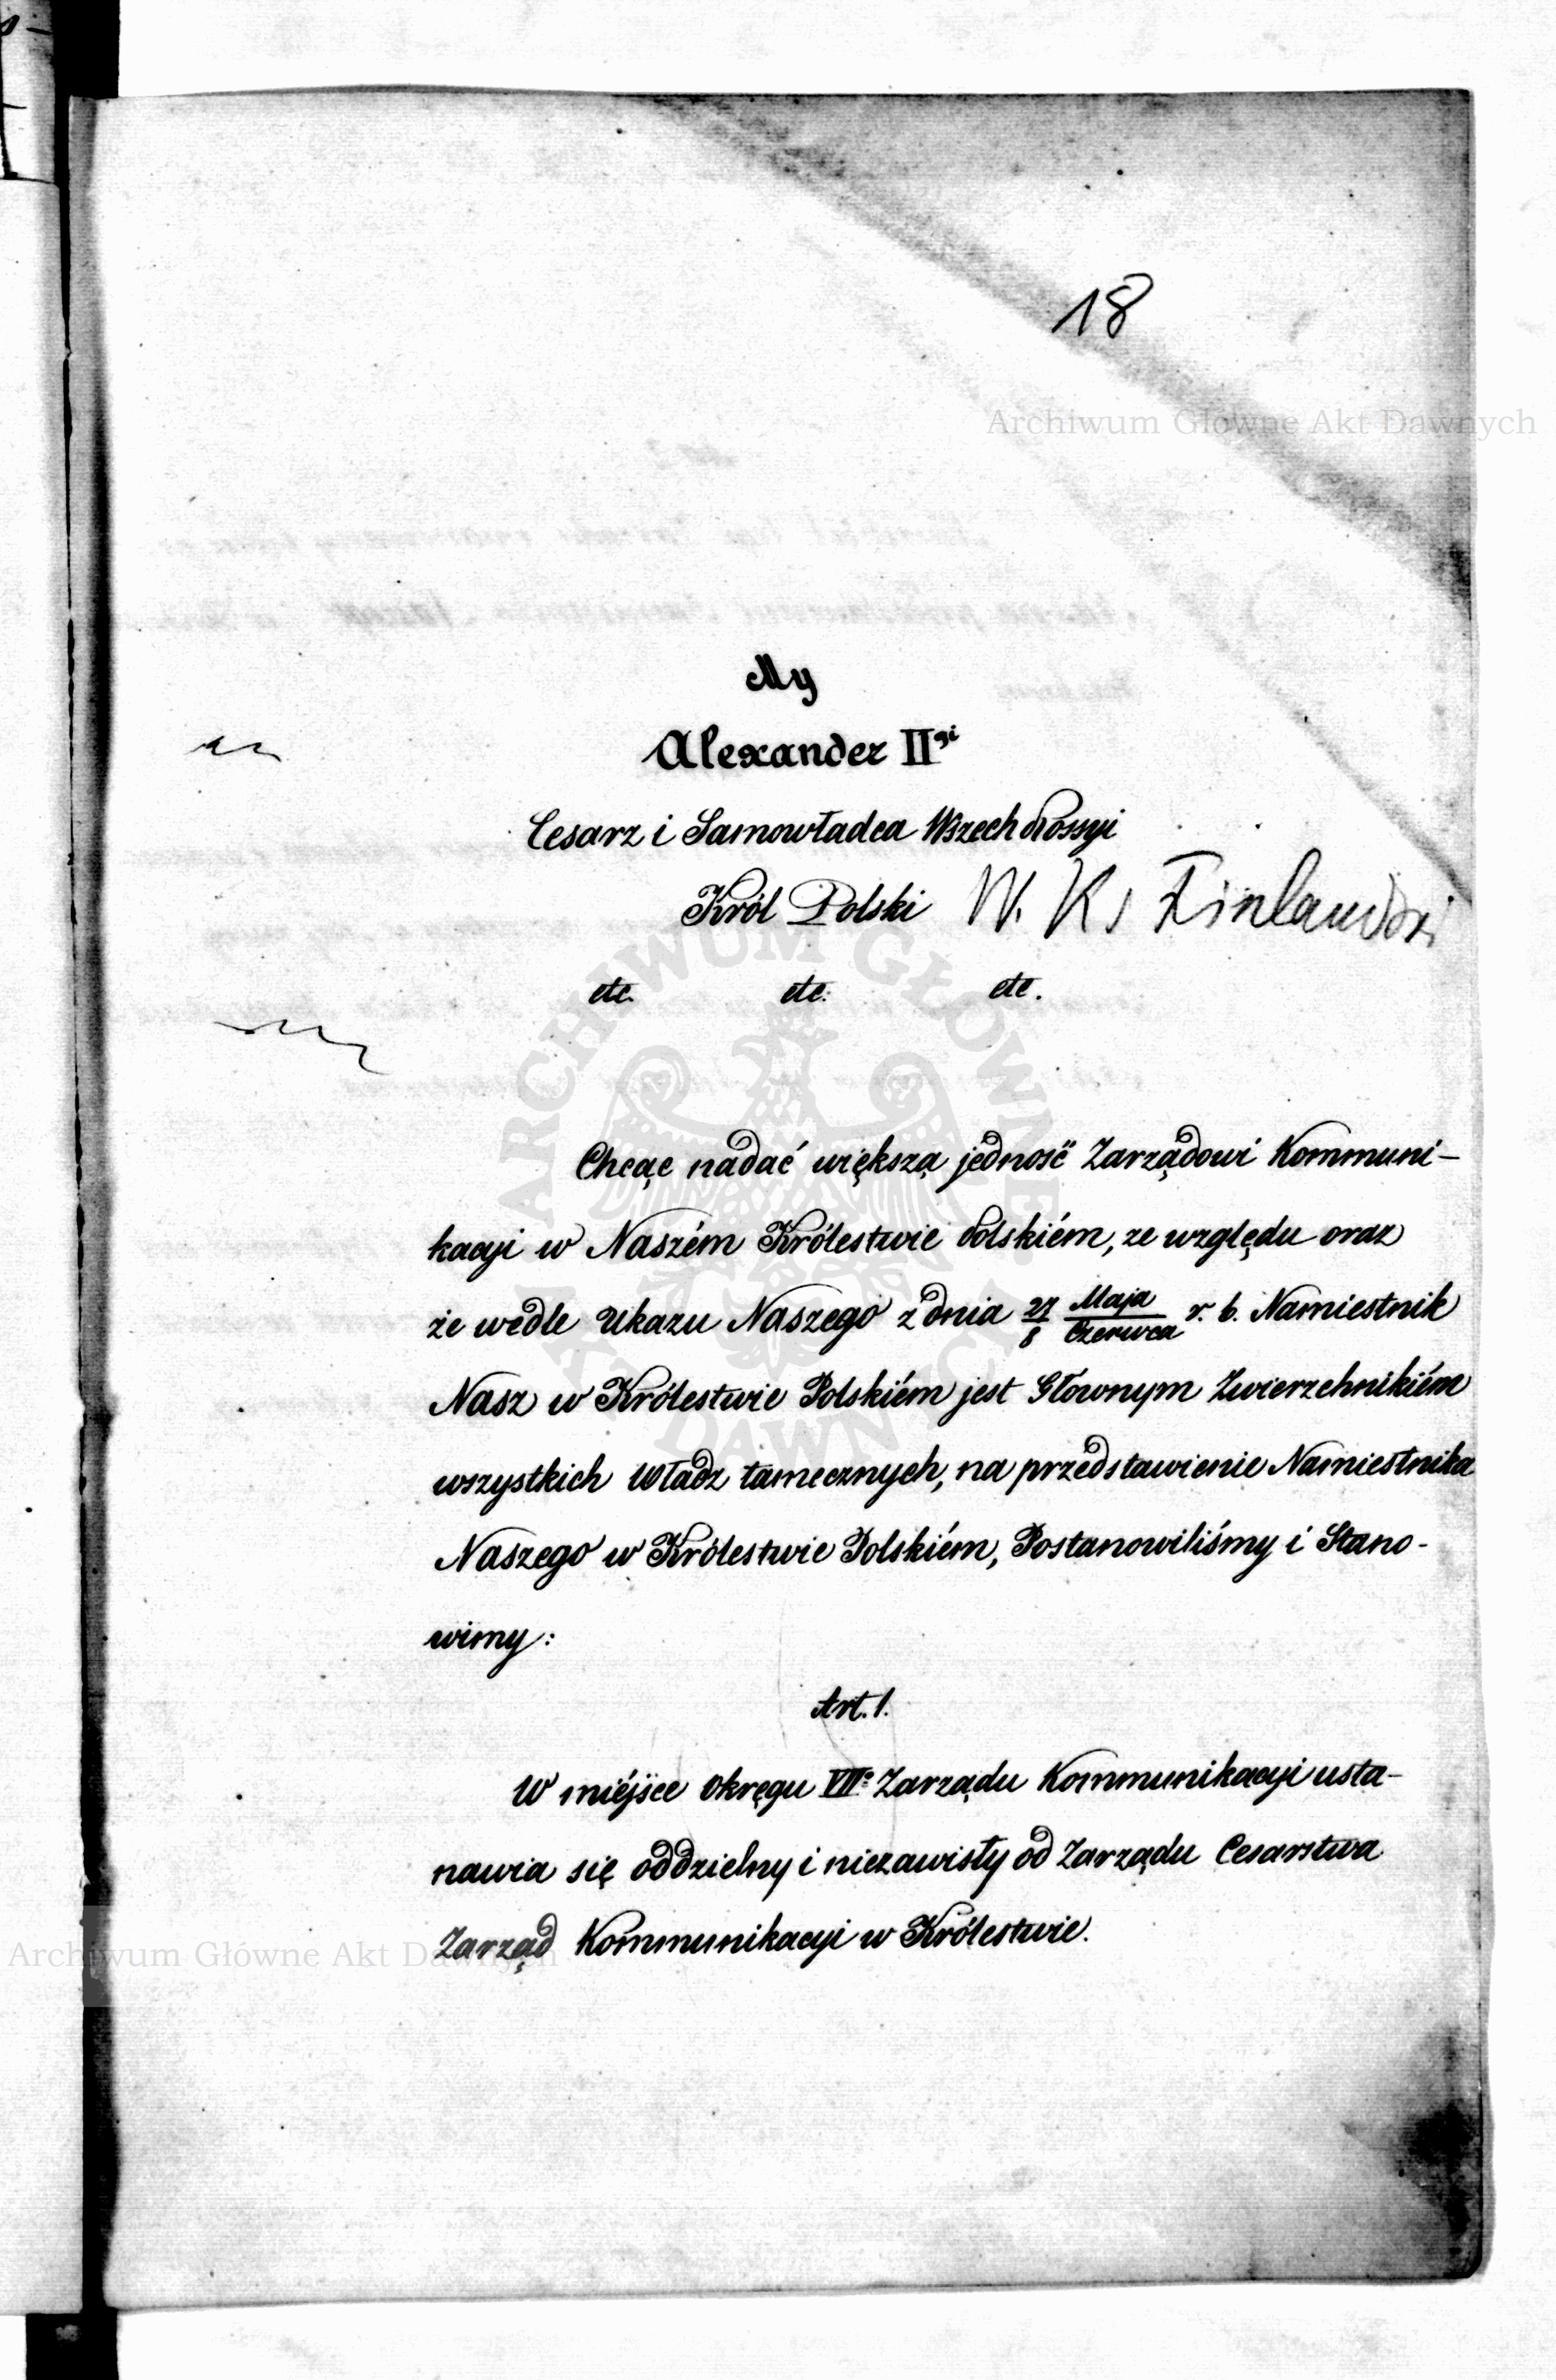 18
Archiwum Główne Akt Dawnych
My
Alexander II<sup>gi</sup>
Cesarz i Samowładca Wszech Rossyi
Król Polski W. Ks Finlandzki
etc. etc: etc.
ARCHIWUM GŁÓWNE AKT DAWNYCH
Chcąc nadać większą jedność Zarządowi Kommuni-
kacyi w Naszém Królestwie Polskiém, ze względu oraz
że wedle Ukazu Naszego z dnia 27/8 Maja/Czerwca r. b. Namiestnik
Nasz w Królestwie Polskiém jest Głównym Zwierzchnikiém
wszystkich Władz tamecznych, na przedstawienie Namiestnika
Naszego w Królestwie Polskiém, Postanowiliśmy i Stano-
wimy:
Art. 1.
W miéjsce Okręgu VII<sup>o</sup> Zarządu Kommunikacyi usta-
nawia się oddzielny i niezawisły od Zarządu Cesarstwa
Zarząd Kommunikacyi w Królestwie.
Archiwum Główne Akt Dawnych